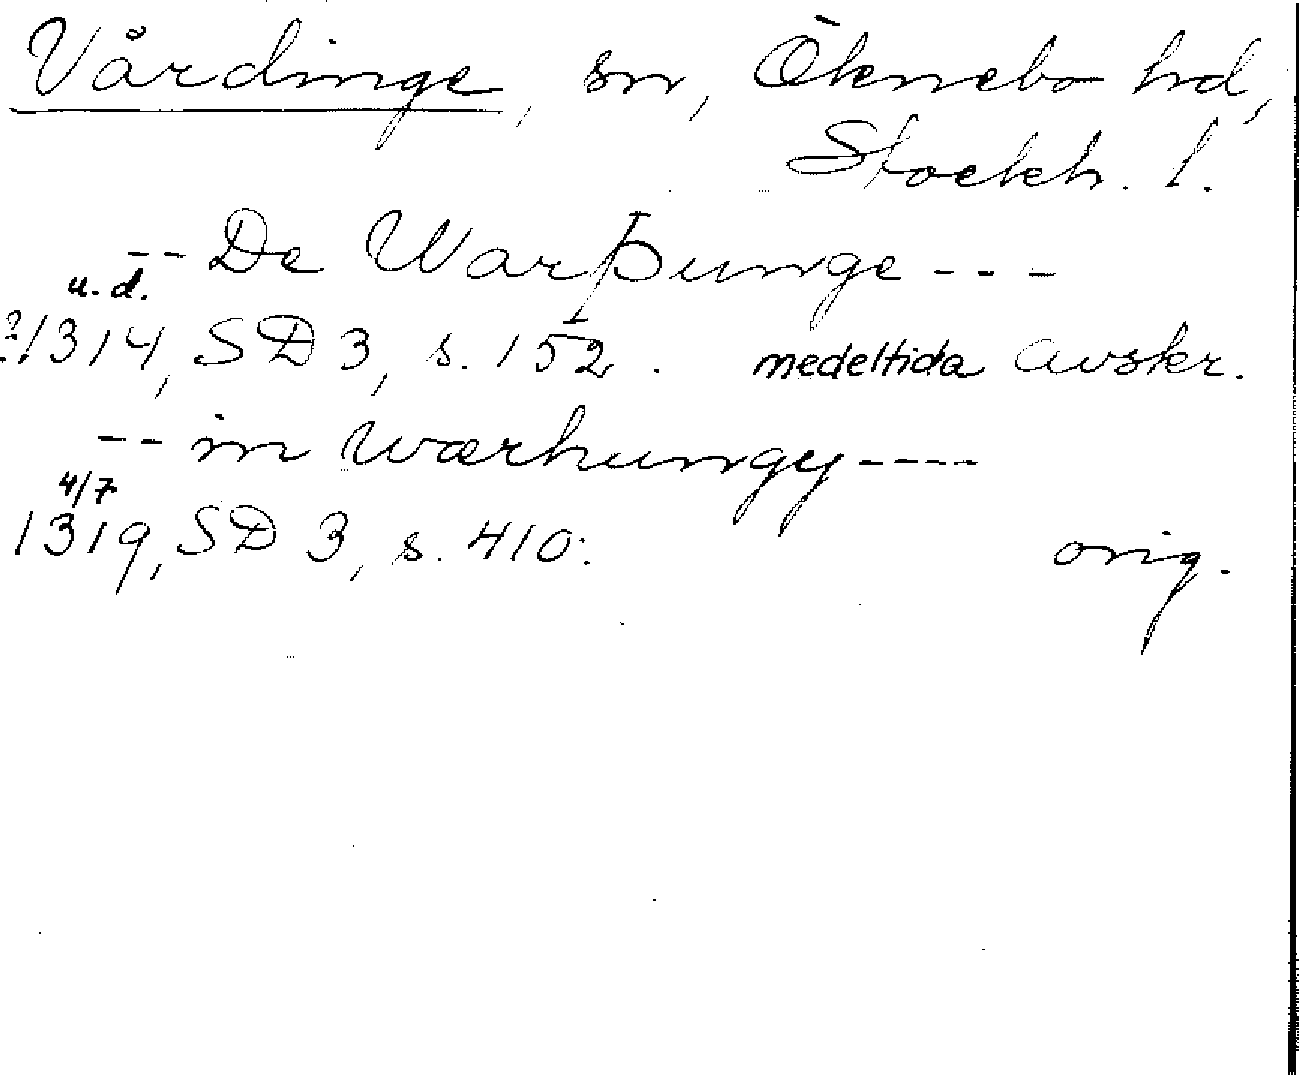 Vårdinge, sn, Öknebo hd,
Stockh. l.
-- De Warþunge ---
u. d.
?1314, SD 3, s. 152. medeltida avskr.
-- in wærhungy ----
4/7
1319, SD 3, s. 410. orig.